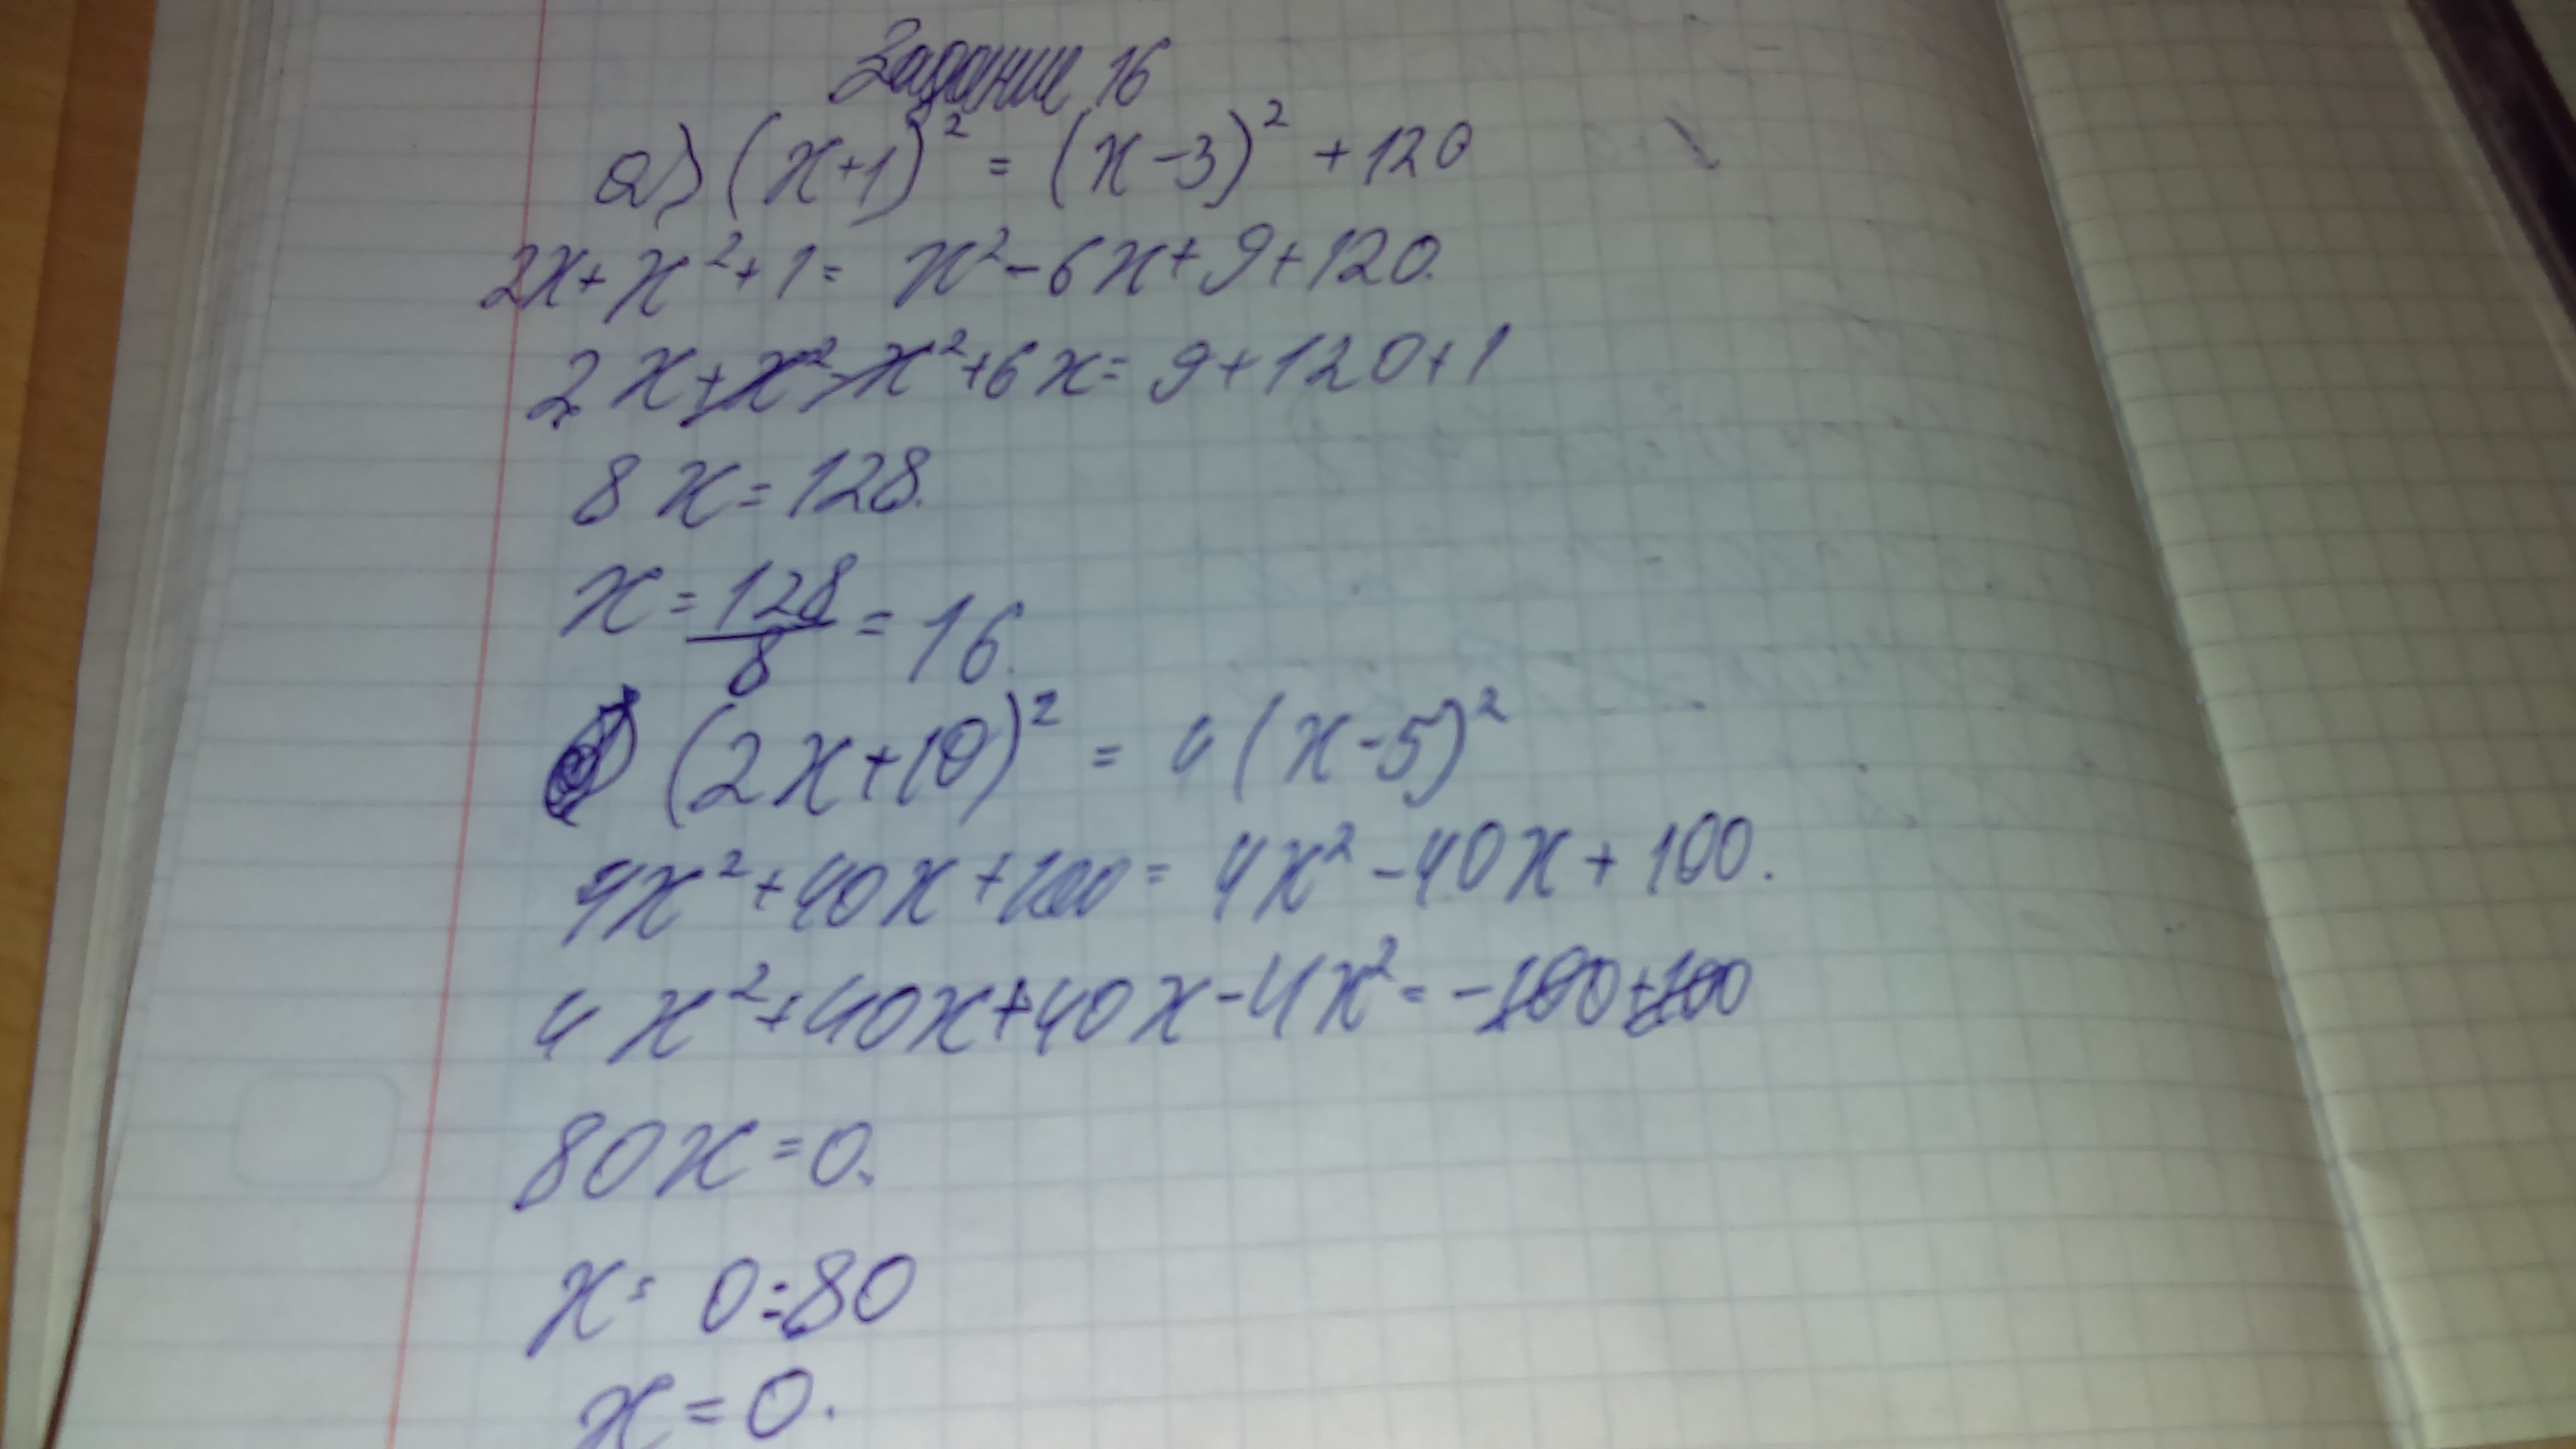 Задание 16
а) (x+1)² = (x-3)² + 120
2x+x²+1= x²-6x+9+120.
2x+x²-x²+6x= 9+120+1
8x=128.
x=128/8=16.
(2x+10)² = 4(x-5)²
4x²+40x+100= 4x²-40x+100.
4x²+40x+40x-4x²= -100+100
80x=0.
x= 0:80
x=0.